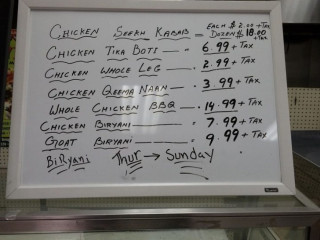 CHICKEN SEEKH KABABS = EACH $ 2.00 + TAX
DOZEN $ 18.00 + TAX
CHICKEN TIKA BOTI — " 6.99 + TAX
CHICKEN WHOLE LEG — " 2.99 + TAX
CHICKEN QEEMA NAAN — " 3.99 + TAX
WHOLE CHICKEN BBQ — " 14.99 + TAX
CHICKEN BIRYANI — " 7.99 + TAX
GOAT BIRYANI — " 9.99 + TAX
BiRyani Thur → Sunday